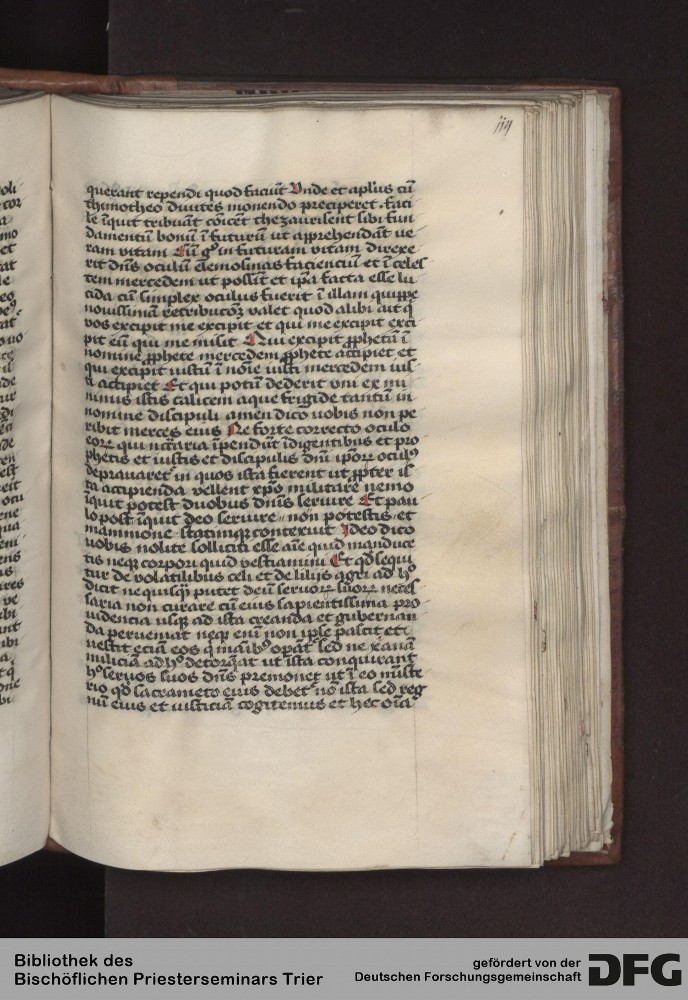 114
querant rependi quod faciūt Vnde et aplūs cū
thimotheo diuites monendo preciperet. faci
le īquit tribuāt cōīcēt thezaurisent sibi fun
damentū bonū ī futurū ut apprehendāt ue
ram vitam Cū gͦ in futuram vitam direxe
rit dn̄s oculū elemosinas faciencīū et ī celes
tem mercedem ut possīt et ip̄a facta esse lu
cida cū simplex oculus fuerit ī illam quippe
nouissimā retribucōꝫ valet quod alibi ait q̄
vos excipit me excipit et qui me excipit exci
pit eū qui me misit Qui excipit ꝓphetā ī
nomine ꝓphete mercedem ꝓphete accipiet et
qui excipit iustū ī noīe iusti mercedem ius
ti accipiet Et qui potū dederit vni ex mi
nimis istis calicem aque frigide tantū in
nomine discipuli amen dico uobis non pe
ribit merces eius Ne forte correcto oculo
eoꝝ qui nccāria īpendūt īdigentibus et pro
phetis et iustis et discipulis dnī ip̄oꝝ oculꝰ
deprauaret in quos ista fierent ut ꝓpter is
ta accipienda vellent xp̄o militare nemo
īquit potest duobus dn̄is seruire Et pau
lo post īquit deo seruire non potestis et
mammone statimqꝫ contexuit Ideo dico
uobis nolite solliciti esse aīe quid manduce
tis neqꝫ corpori quid vestiamini Et qd̄ sequi
tur de volatilibus celi et de lilijs agri ad hͦ
dicit ne quisqͣ putet deū seruoꝝ suoꝝ neces
saria non curare cū eius sapientissima pro
uidencia usqꝫ ad ista creanda et gubernan
da perueniat neqꝫ enī non ipse pascit et
uestit eciā eos q̄ maībꝰ opāt sed ne xānā
miliciā ad hͦ detorq̄at ut ista conquirant
hͦ seruos suos dn̄s premonet ut ī eo mīste
rio qd̄ sacrameto eius debet nō ista sed reg
nū eius et iusticiā cogitemus et hec oīa
Bibliothek des
Bischöflichen Priesterseminars Trier
gefördert von der
Deutschen Forschungsgemeinschaft
DFG